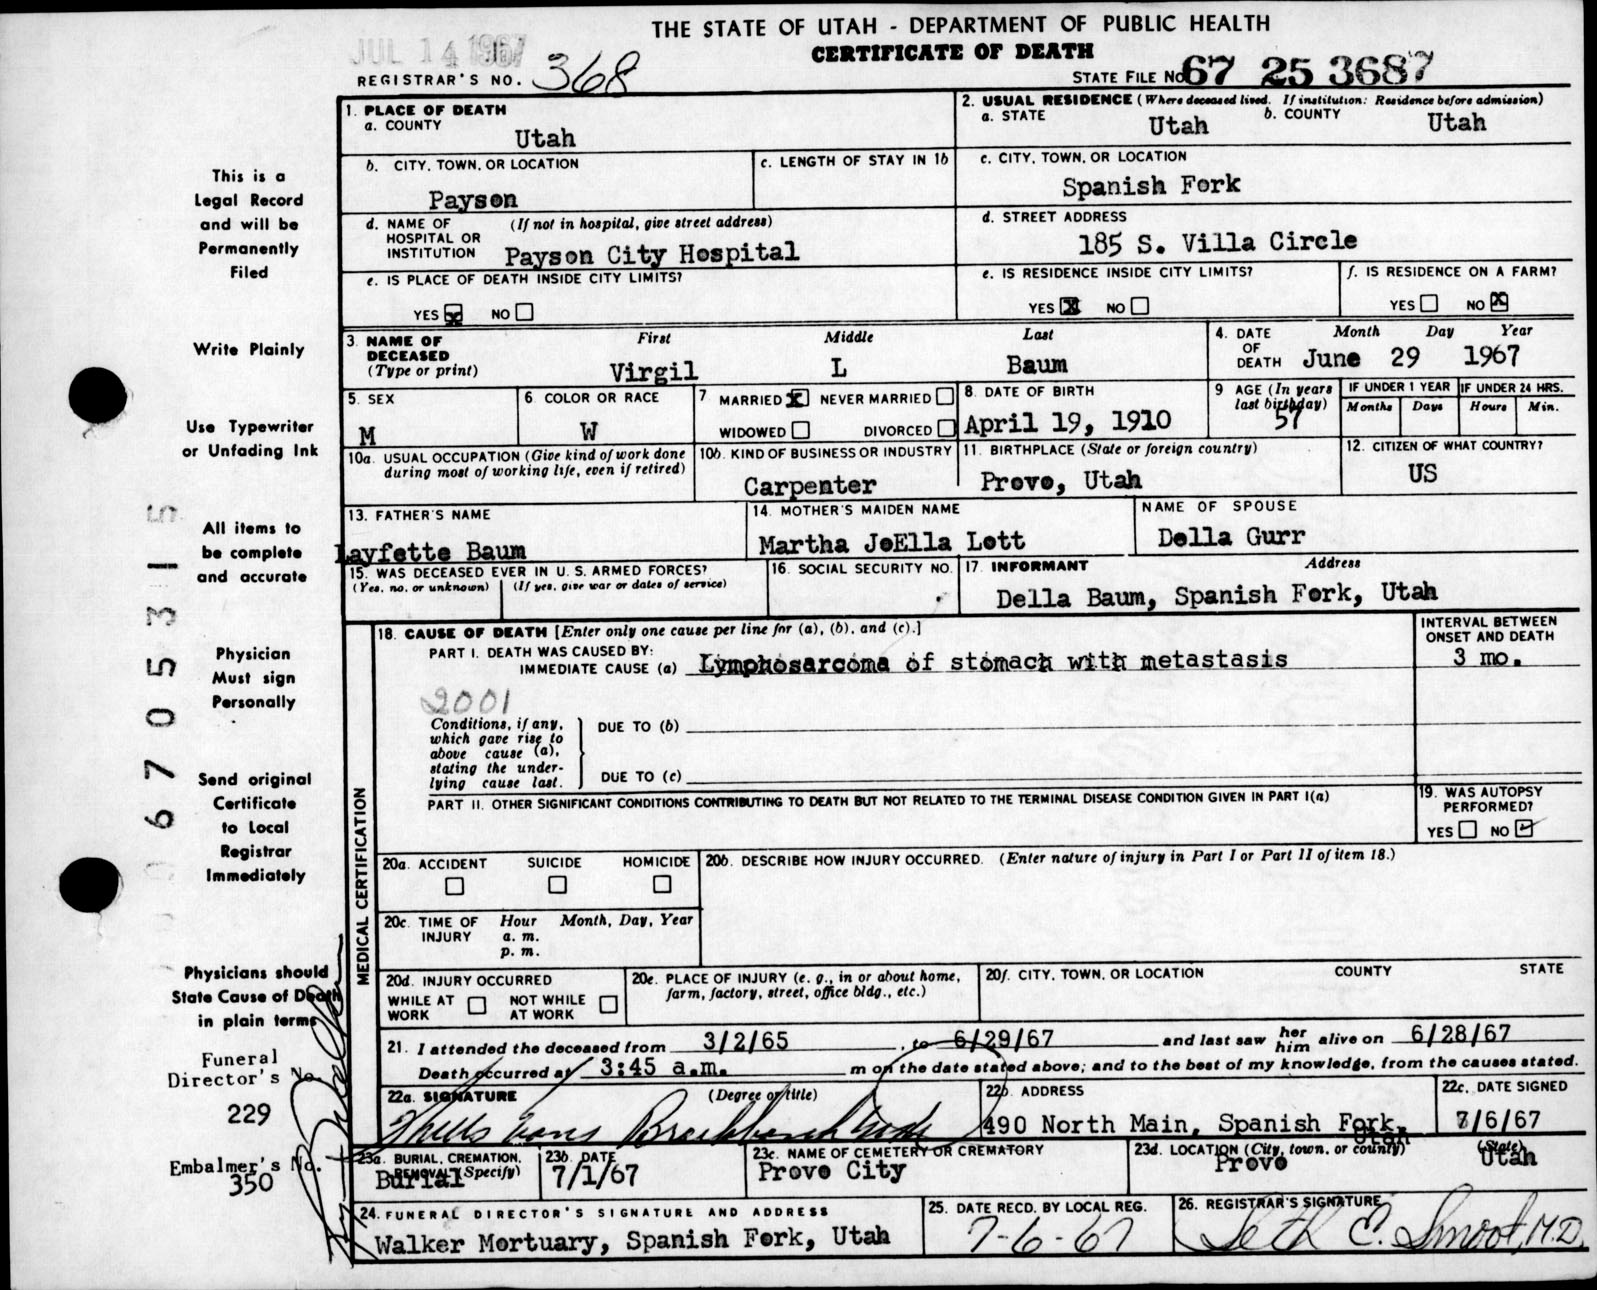 THE STATE OF UTAH - DEPARTMENT OF PUBLIC HEALTH
CERTIFICATE OF DEATH
JUL 14 1967
REGISTRAR'S NO. 368
STATE FILE NO. 67 25 3687
1. PLACE OF DEATH
a. COUNTY
Utah
2. USUAL RESIDENCE (Where deceased lived. If institution: Residence before admission)
a. STATE Utah b. COUNTY Utah
b. CITY, TOWN, OR LOCATION
Payson
c. LENGTH OF STAY IN 1b
c. CITY, TOWN, OR LOCATION
Spanish Fork
d. NAME OF HOSPITAL OR INSTITUTION (If not in hospital, give street address)
Payson City Hospital
d. STREET ADDRESS
185 S. Villa Circle
e. IS PLACE OF DEATH INSIDE CITY LIMITS?
YES x NO
e. IS RESIDENCE INSIDE CITY LIMITS?
YES X NO
f. IS RESIDENCE ON A FARM?
YES NO X
3. NAME OF DECEASED (Type or print)
First Middle Last
Virgil L Baum
4. DATE OF DEATH
Month Day Year
June 29 1967
5. SEX
M
6. COLOR OR RACE
W
7 MARRIED X NEVER MARRIED
WIDOWED DIVORCED
8. DATE OF BIRTH
April 19, 1910
9 AGE (In years last birthday)
57
IF UNDER 1 YEAR
Months Days
IF UNDER 24 HRS.
Hours Min.
10a. USUAL OCCUPATION (Give kind of work done during most of working life, even if retired)
10b. KIND OF BUSINESS OR INDUSTRY
Carpenter
11. BIRTHPLACE (State or foreign country)
Provo, Utah
12. CITIZEN OF WHAT COUNTRY?
US
13. FATHER'S NAME
Layfette Baum
14. MOTHER'S MAIDEN NAME
Martha JoElla Lott
NAME OF SPOUSE
Della Gurr
15. WAS DECEASED EVER IN U. S. ARMED FORCES?
(Yes, no, or unknown) (If yes, give war or dates of service)
16. SOCIAL SECURITY NO.
17. INFORMANT Address
Della Baum, Spanish Fork, Utah
MEDICAL CERTIFICATION
18. CAUSE OF DEATH [Enter only one cause per line for (a), (b), and (c).]
PART I. DEATH WAS CAUSED BY:
IMMEDIATE CAUSE (a) Lymphosarcoma of stomach with metastasis
INTERVAL BETWEEN ONSET AND DEATH
3 mo.
2001
Conditions, if any, which gave rise to above cause (a), stating the underlying cause last.
DUE TO (b)
DUE TO (c)
PART II. OTHER SIGNIFICANT CONDITIONS CONTRIBUTING TO DEATH BUT NOT RELATED TO THE TERMINAL DISEASE CONDITION GIVEN IN PART I(a)
19. WAS AUTOPSY PERFORMED?
YES NO ✓
20a. ACCIDENT SUICIDE HOMICIDE
20b. DESCRIBE HOW INJURY OCCURRED. (Enter nature of injury in Part I or Part II of item 18.)
20c. TIME OF INJURY Hour Month, Day, Year
a. m.
p. m.
20d. INJURY OCCURRED
WHILE AT WORK NOT WHILE AT WORK
20e. PLACE OF INJURY (e. g., in or about home, farm, factory, street, office bldg., etc.)
20f. CITY, TOWN, OR LOCATION COUNTY STATE
21. I attended the deceased from 3/2/65, to 6/29/67 and last saw her him alive on 6/28/67
Death occurred at 3:45 a.m. m on the date stated above; and to the best of my knowledge, from the causes stated.
22a. SIGNATURE (Degree or title)
22b. ADDRESS
490 North Main, Spanish Fork, Utah
22c. DATE SIGNED
7/6/67
23a. BURIAL, CREMATION, REMOVAL (Specify)
Burial
23b. DATE
7/1/67
23c. NAME OF CEMETERY OR CREMATORY
Provo City
23d. LOCATION (City, town, or county) (State)
Provo Utah
24. FUNERAL DIRECTOR'S SIGNATURE AND ADDRESS
Walker Mortuary, Spanish Fork, Utah
25. DATE RECD. BY LOCAL REG.
7-6-67
26. REGISTRAR'S SIGNATURE
Seth E. Smoot, M.D.
This is a
Legal Record
and will be
Permanently
Filed
Write Plainly
Use Typewriter
or Unfading Ink
All items to
be complete
and accurate
Physician
Must sign
Personally
Send original
Certificate
to Local
Registrar
Immediately
Physicians should
State Cause of Death
in plain terms
Funeral
Director's No.
229
Embalmer's No.
350